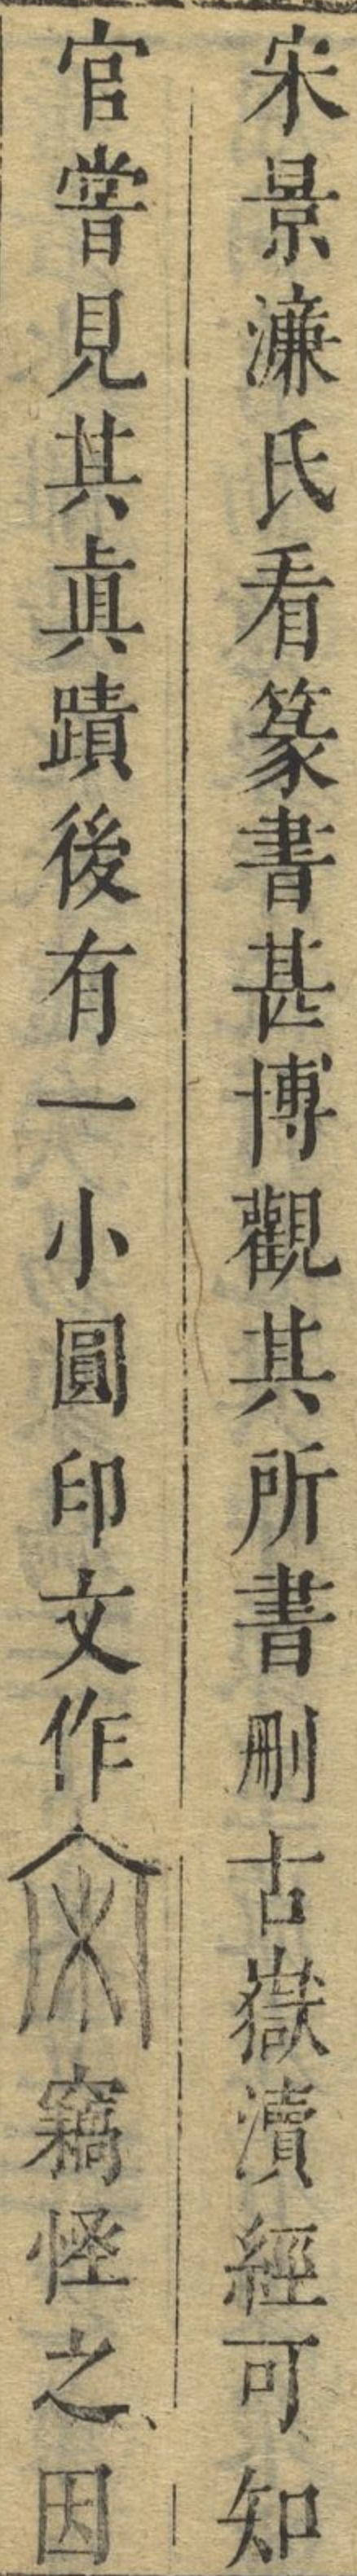 宋景濓氏看篆書甚博觀其所書刪古嶽瀆經可知
官嘗見其眞蹟後有一小圓印文作宋竊怪之因